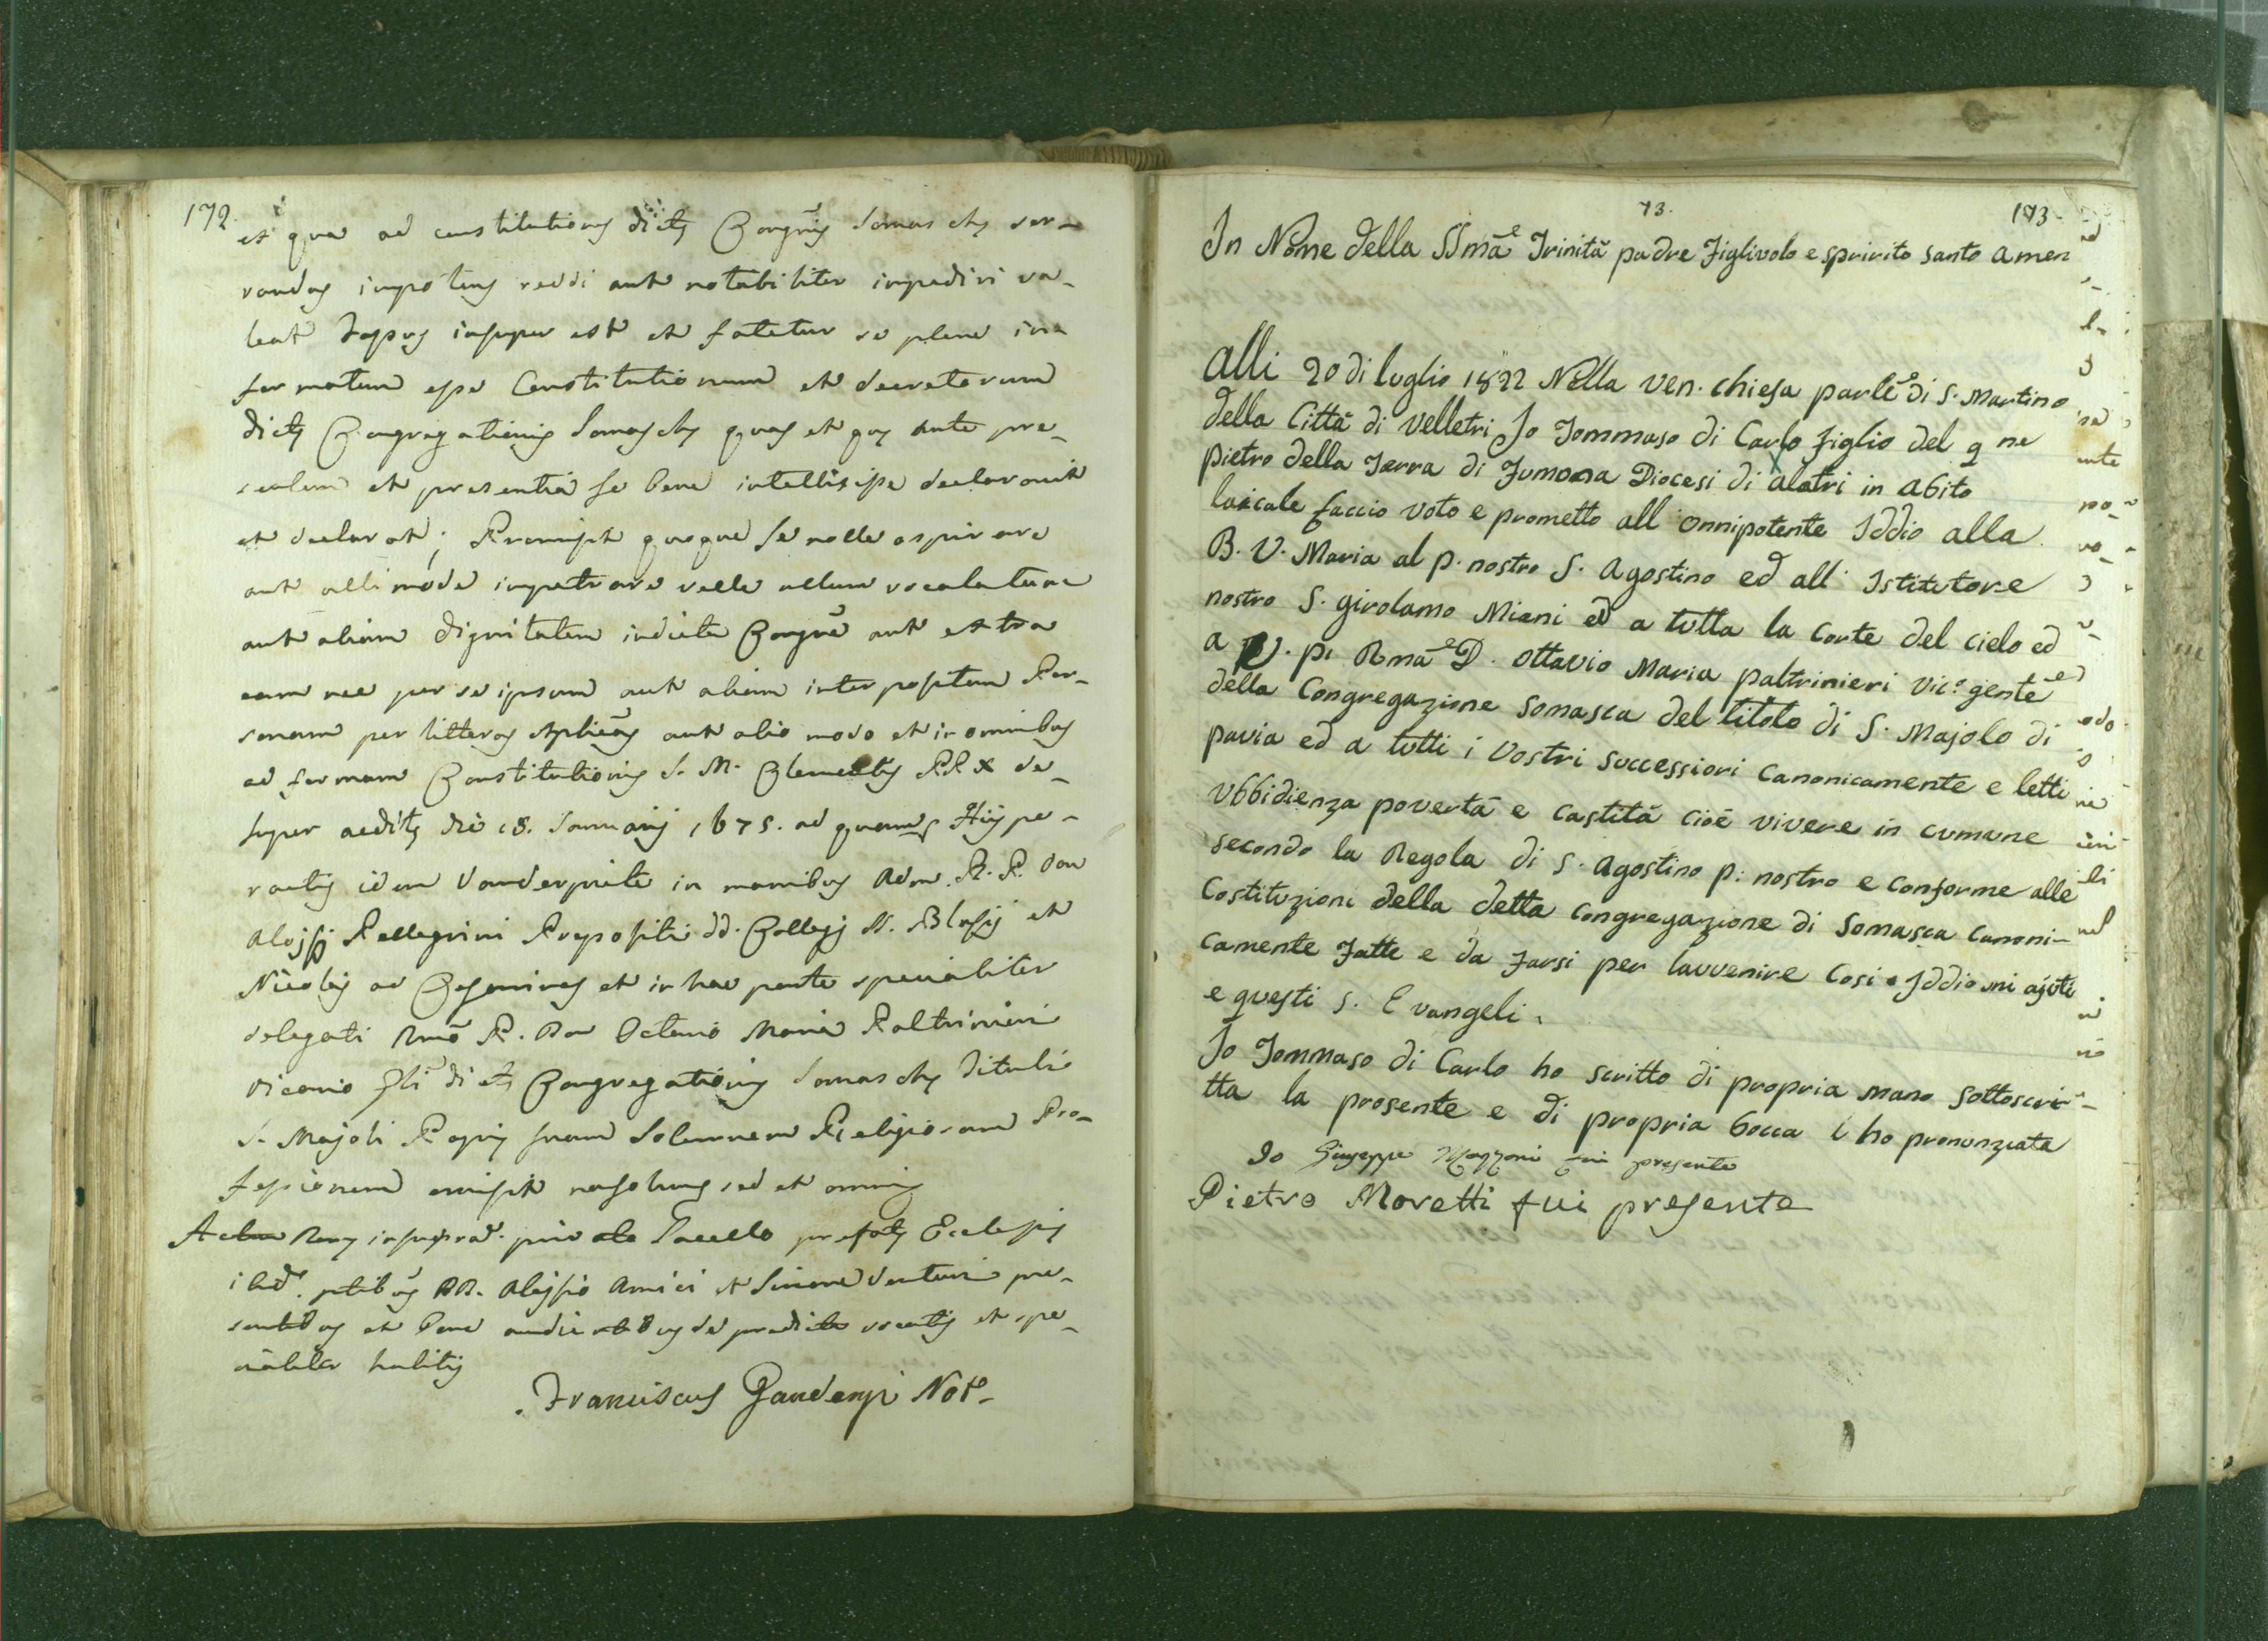 172.
et que ad constitutiones dictę Congñis Somaschę ser-
vandas impotens reddi aut notabiliter impediri va-
leat insuper est et fatetur se plene in-
formatum esse Constitutionum et decretorum
dictę Congregationis Somaschę quas et que ante pre-
sentem et presentia se bene intellixisse declaravit
et declarat; Promisit quoque se nolle aspirare
aut ulli mode impetrare velle ullum vocalatum
aut aliam dignitatem in dicta Congnē aut extra
eam nec per se ipsum aut aliam interpositam Per-
sonam per litteras Aplicās aut alio modo et in omnibus
ad formam Constitutionis S. M. Clementis PP. X de-
super aeditę die 18. Januarij 1675. ad quam Hijs pe-
ractis idem in manibus Adm. R. P. Don
Aloysij Pellegrini Prepositi dd. Collegij SS. Blasij et
Nicolaj ad Cesarinos et in hac parte specialiter
delegati Rmō P. Don Octavio Maria Paltrinieri
Vicario Gli dictę Congregationis Somaschę Tituli
S. Majoli Papię suam Solemnem Religiosam Pro-
fessionem emisit non solum sed et omnis
Actum Romę in supradᵒ. privato Sacello prefatę Ecclesię
ibidᵐ. ptibus DD. Aloysio Amici et Simone Venturi pre-
sentibus et bene audientibus de predictis vocatis et spe-
cialiter habitis
Franciscus Gaudenzi Notᵒ.
73.
173.
In Nome della SSmāᵉ Trinità padre Figlivolo e spririto santo amen
alli 20 di luglio 1822 Nella ven. chiesa parleᵉ di S. Martino
della Città di velletri Io Tommaso di Carlo figlio del q ne
pietro della Terra di Fumona Diocesi di alatri in abito
laicale faccio voto e prometto all onnipotente Iddio alla
B. V. Maria al p. nostro S. agostino ed all' Istitutore
nostro S. girolamo Miani ed a tutta la Corte del cielo ed
a V. p. Rmāᵉ D. Ottavio Maria paltrinieri Vicᵒ gentēᵉ
della Congregazione somasca del titolo di S. Majolo di
pavia ed a tutti i Vostri successiori Canonicamente e letti
Vbbidienza povertà e castità cioè vivere in cumune
secondo la Regola di S. agostino p: nostro e conforme alle
Costituzioni della detta congregazione di Somasca Canoni-
camente Fatte e da Farsi per lavvenire Cosi Iddio mi ajuti
e questi S. Evangeli.
Io Tommaso di Carlo ho scritto di propria mano sottoscri-
tta la presente e di propria bocca l ho pronunziata
Io Giuseppe Mazzoni fui presente
Pietro Moretti fui presente